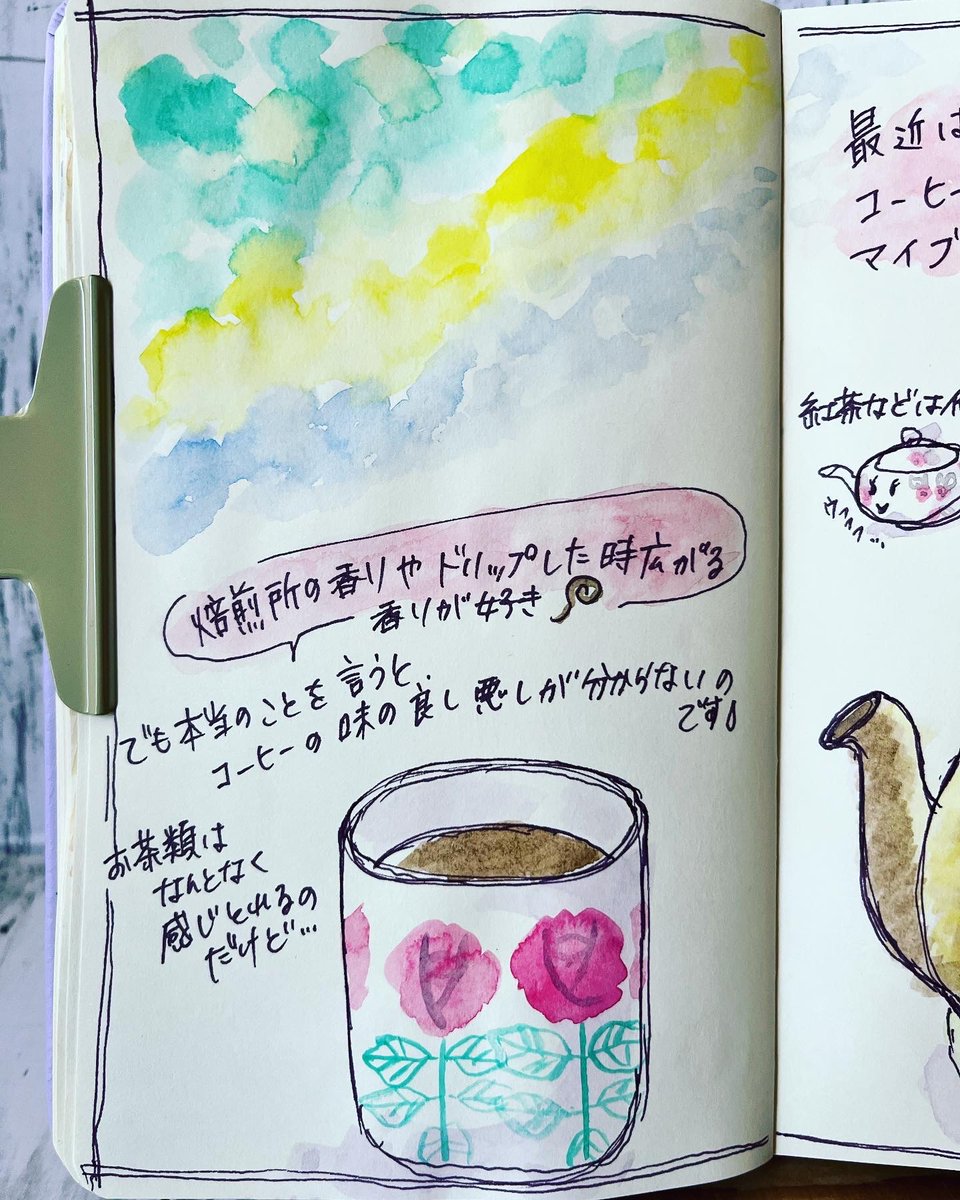 焙煎所の香りやドリップした時広がる
香りが好き
でも本当のことを言うと、
コーヒーの味の良し悪しが分からないの
です！
お茶類は
なんとなく
感じとれるの
だけど…
最近は
コーヒー
マイブ
紅茶などは
ウフフフ…